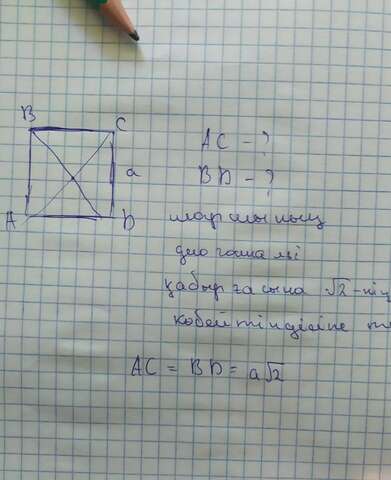 B
C
AC - ?
a
BD - ?
A
D
шаршының
диагоналі
қабырғасына √2-нің
көбейтіндісіне т
AC = BD = a√2